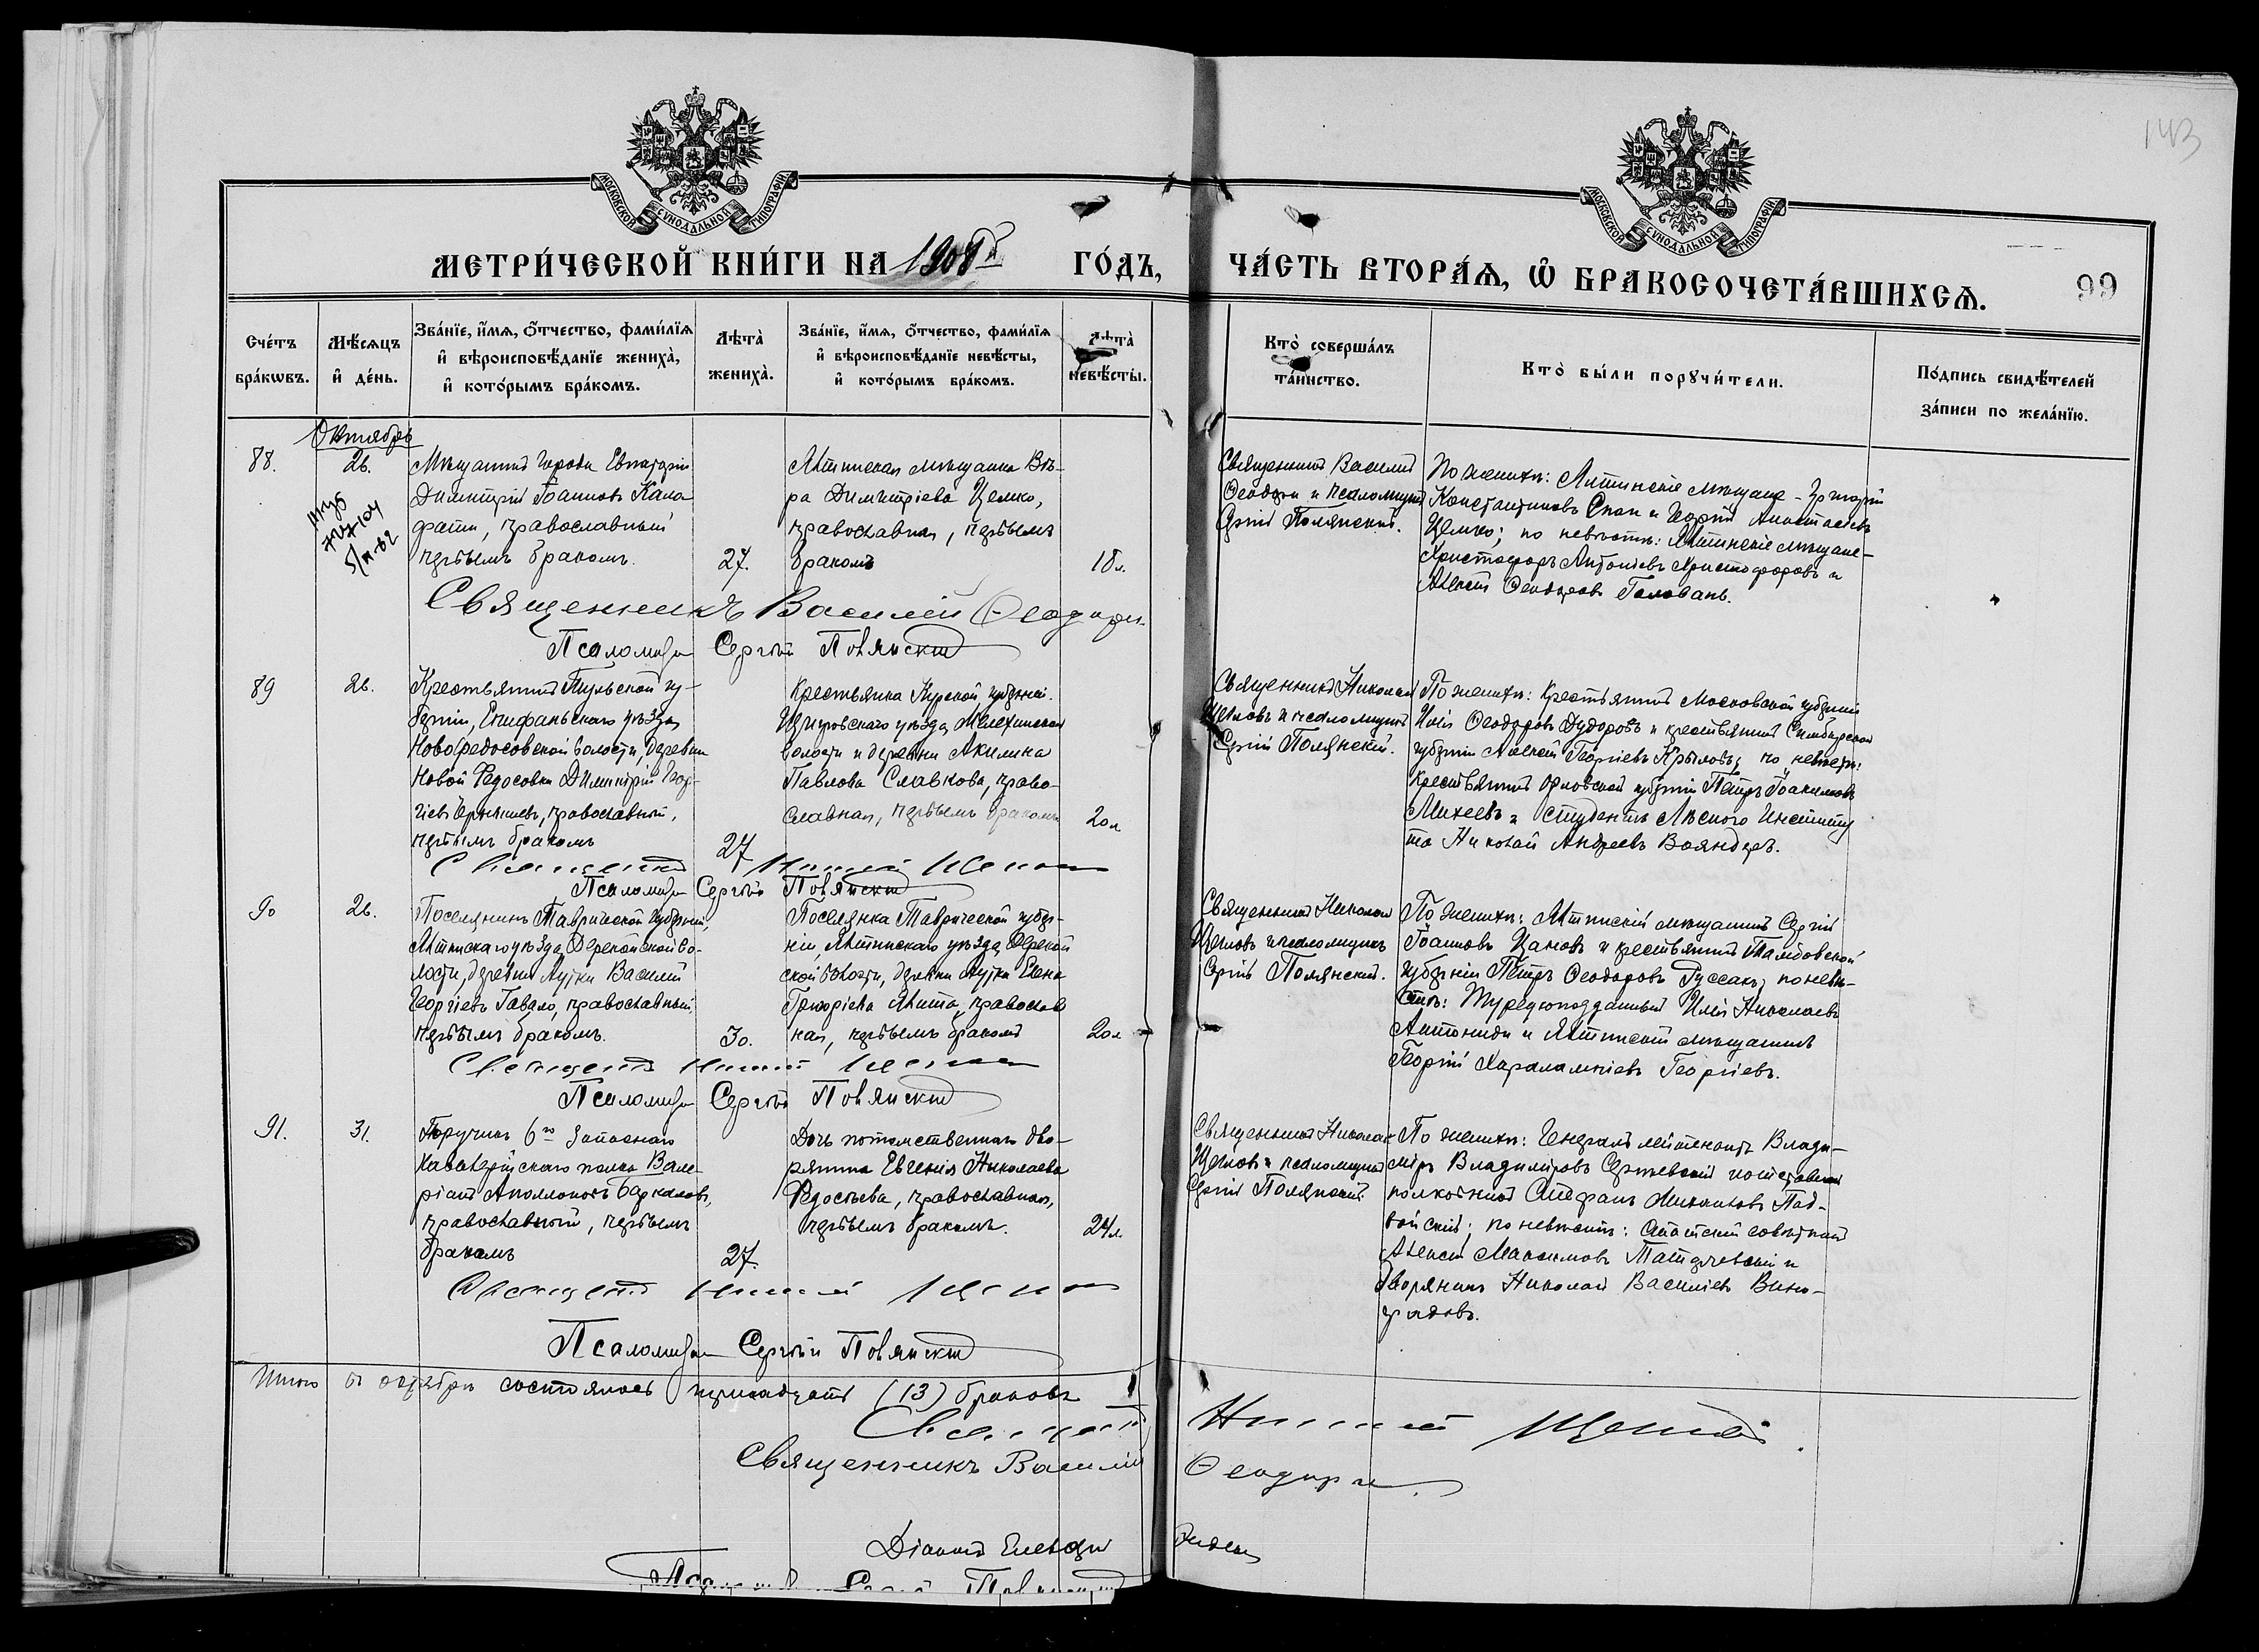 МОСКОВСКОЙ СѴНОДАЛЬНОЙ ТИПОГРАФІИ
МОСКОВСКОЙ СѴНОДАЛЬНОЙ ТИПОГРАФІИ
143
МЕТРИ́ЧЕСКОЙ КНИ́ГИ НА 1908й ГО́ДЪ,
ЧА́СТЬ ВТОРА́Ѧ, Ѡ҆ БРАКОСОЧЕТА́ВШИХСѦ.
99
Сче́тъ
бра́кѡвъ.
Мѣ́сѧцъ
и҆ де́нь.
Зва́нїе, и҆́мѧ, ѻ҆́тчество, фами́лїѧ
и҆ вѣроисповѣ́данїе жениха̀,
и҆ кото́рымъ бра́комъ.
Лѣта̀
жениха̀.
Зва́нїе, и҆́мѧ, ѻ҆́тчество, фами́лїѧ
и҆ вѣроисповѣ́данїе невѣ́сты,
и҆ кото́рымъ бра́комъ.
Лѣта̀
невѣ́сты.
Кто̀ соверша́лъ
та́инство.
Кто̀ бы́ли порꙋчи́тели.
По́дпись свидѣ́телей
за́писи по жела́нїю.
Октябрь
88.
26.
Мѣщанинъ города Евпаторіи
Димитрій Іоанновъ Кала
фати, православный
первымъ бракомъ.
27.
Ялтинская мѣщанка Вѣ-
ра Димитріева Цемко,
православная, первымъ
бракомъ
18 л.
Священникъ Василій
Ѳеодори и псаломщикъ
Сергій Полянскій.
По женихѣ: Ялтинскіе мѣщане - Григорій
Константиновъ Спаи и Георгій Анастасіевъ
Цемко; по невѣстѣ: Ялтинскіе мѣщане -
Христофоръ Антоніевъ Христофоровъ и
Алексѣй Ѳеодоровъ Головань.
Священникъ Василій Ѳеодори.
Псаломщ Сергій Полянскій
89
26.
Крестьянинъ Тульской гу-
берніи, Епифаньскаго уѣзда,
Новофедосовской волости, деревни
Новой Федосовки Димитрій Геор-
гіевъ православный,
первымъ бракомъ
27
Крестьянка Курской губерніи.
Щигровскаго уѣзда,
волости и деревни Акилина
Павлова Славкова, право-
славная, первымъ бракомъ
20 л
Священникъ Николай
Щегловъ и псаломщикъ
Сергій Полянскій.
По женихѣ: Крестьянинъ Московской губерніи
Илія Ѳеодоровъ Дудоровъ и крестьянинъ Симбирской
губерніи Алексѣй Георгіевъ Крыловъ; по невѣстѣ:
Крестьянинъ Орловской губерніи Петръ Іоакимовъ
Михеевъ и студентъ Лѣсного Институ
та Николай Андреевъ
Священникъ Николай Щегловъ
Псаломщ Сергій Полянскій
90
26.
Поселянинъ Таврической губерніи,
Ялтинскаго уѣзда, Дерекойской во-
лости, деревни Аутки Василій
Георгіевъ Гавало, православный
первымъ бракомъ.
30.
Поселянка Таврической губер-
ніи, Ялтинскаго уѣзда, Дерекой
ской волости, деревни Аутки Елена
Григоріева православ
ная, первымъ бракомъ
20 л
Священникъ Николай
Щегловъ и псаломщикъ
Сергій Полянскій.
По женихѣ: Ялтинскій мѣщанинъ Сергій
Іоанновъ Цановъ и крестьянинъ Тамбовской
губерніи Петръ Ѳеодоровъ Руссакъ; по невѣ-
стѣ: Турецкоподданный Илія Николаевъ
Антониди и Ялтинскій мѣщанинъ
Георгій Харалампіевъ Георгіевъ.
Священникъ Николай Щегловъ
Псаломщ Сергій Полянскій
91.
31.
Поручикъ 6го Запаснаго
Кавалерійскаго полка Вале-
ріанъ Аполлоновъ Баркаловъ,
православный, первымъ
бракомъ
27.
Дочь потомственнаго дво-
рянина Евгенія Николаева
православная,
первымъ бракомъ.
24 л.
Священникъ Николай
Щегловъ и псаломщикъ
Сергій Полянскій.
По женихѣ: Генералъ лейтенантъ Влади-
міръ Владиміровъ и отставной
полковникъ Михаиловъ Под-
войскій; по невѣстѣ: Статскій совѣтникъ
Алексѣй Максимовъ и
дворянинъ Николай Василіевъ Вино-
градовъ.
Священникъ Николай Щегловъ
Псаломщ Сергій Полянскій
Итого въ октябрѣ состоялось тринадцать (13) браковъ
Священникъ Николай Щегловъ.
Священникъ Василій Ѳеодори.
Діаконъ
Псаломщ Сергій Полянскій